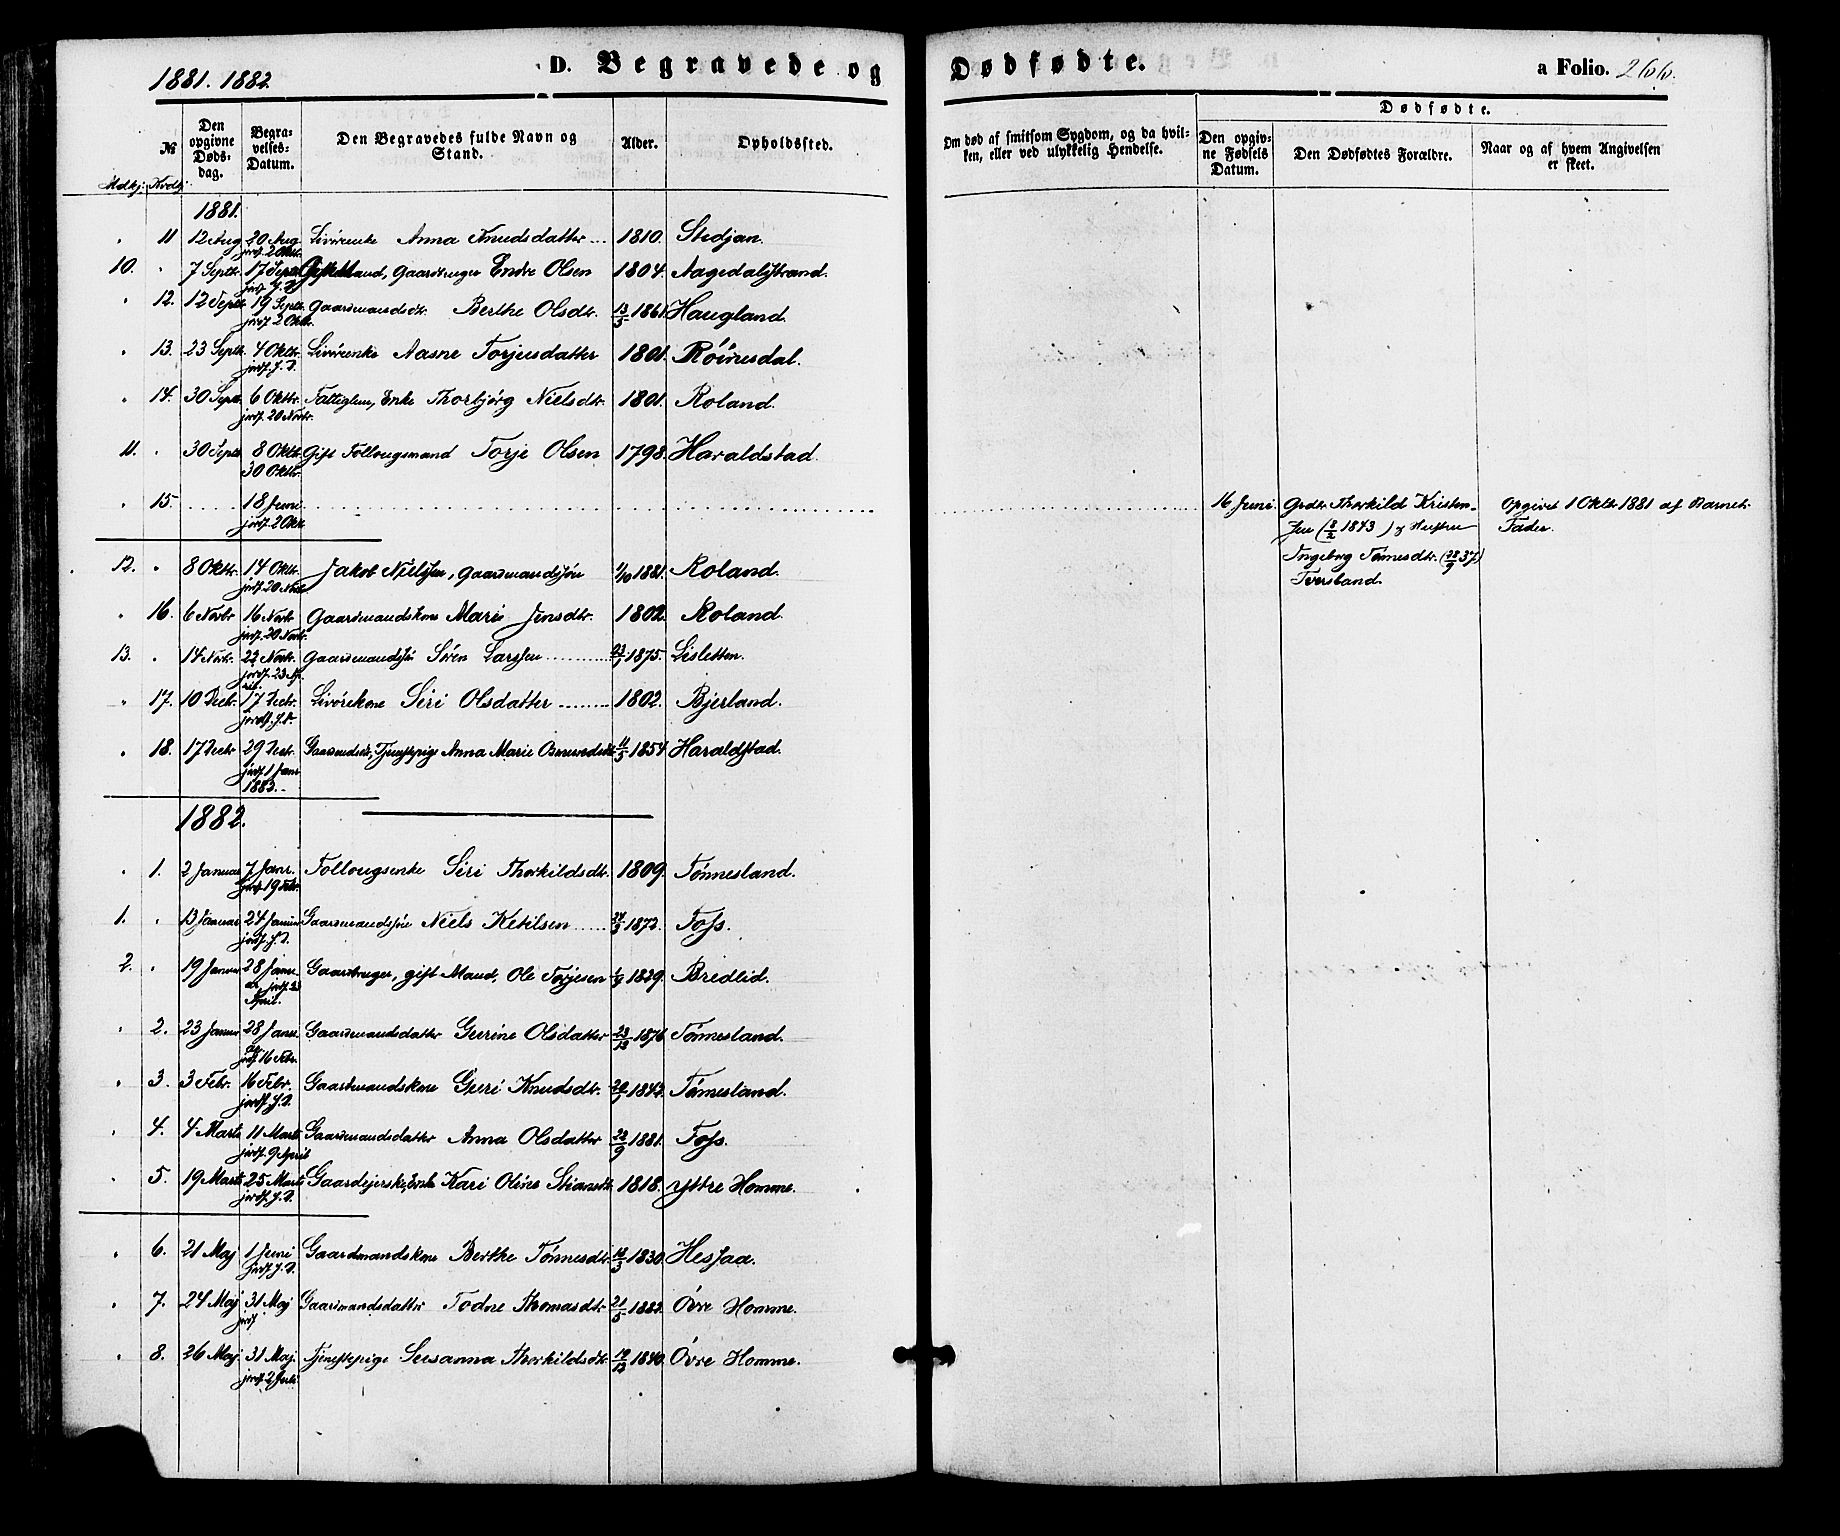 1881. 1882.
D. Begravede og Dødfødte. a Folio. 266.
№
Mdkj. Kvdkj.
Den opgivne Dødsdag.
Begravelses-Datum.
Den Begravedes fulde Navn og Stand.
Alder.
Opholdssted.
Om død af smitsom Sygdom, og da hvilken, eller ved ulykkelig Hendelse.
Dødfødte.
Den opgivne Fødsels Datum.
Den Dødfødtes Forældre.
Naar og af hvem Angivelsen er skeet.
1881.
" 11 12 Aug 20 Aug jordf. 2 Oktr. Livørenke Anna Knudsdatter 1810. Stedjan.
10. " 7 Septr. 17 Septr. Gift Mand, Gaardbruger Endre Olsen 1804. Aagedalstrand.
" 12. 12 Septr. 19 Septr. jordf. 2 Oktr. Gaardmandsdtr. Berthe Olsdtr. 13/5 1861. Haugland.
" 13. 23 Septr. 4 Oktr. jordf. s. D. Livørenke Aasne Torjusdatter 1801. Röinesdal.
" 14. 30 Septr. 6 Oktbr. jordf. 20 Novbr. Fattiglem, Enke Thorbjørg Nielsdtr. 1801. Roland.
11. " 30 Septr. 8 Oktbr. 30 Oktbr. Gift Follougsmand Torje Olsen 1798. Haraldstad.
" 15. 18 Juni jordf. 2 Okt. 16 Juni. Grdbr. Thorkild Kristensen (8/2 1843) & Hustru Ingeborg Tönnesdtr. (22/9 37) Tversland. Opgivet 1 Oktr. 1881 af Barnets Fader.
12. " 8 Oktbr. 14 Oktbr. jordf. 20 Novbr. Jakob Nielssen, Gaardmandssøn 1/10 1881. Roland.
" 16. 6 Novbr. 16 Novbr. jordf. 20 Novbr. Gaardmandskone Mari Jensdtr. 1802. Roland.
13. " 14 Novbr. 22 Novbr. Gaardmandssøn Sören Larssen 1875. Lisletten.
" 17. 10 Decbr. 17 Decbr. jordf. s. D. Livørekone Siri Olsdatter 1802. Bjerland.
" 18. 17 Decbr 29 Decbr. jordf. 1 Janr. 1882. Tjenstepige Anna Marie 11/5 1854. Haraldstad.
1882.
" 1. 2 Januar 7 Janr. jordf. 19 Febr. Follougsenke Siri Thorkildsdtr. 1809. Tönnesland.
1. " 13 Januar 24 Januar jordf. s. D. Gaardmandssøn Niels Ketilsen 1872. Foss.
2. " 19 Januar 28 Janr. April. Gaardbruger, gift Mand, Ole Torjesen 1829. Bredlid.
" 2. 23 Januar 28 Janr. jordf. 16 Febr. Gaardmandsdatter Gurine Olsdatter 23/12 1876 Tönnesland.
" 3. 3 Febr. 16 Febr. jordf. s. D. Gaardmandskone Guri Knudsdtr. 1842. Tönnesland.
" 4. 4 Marts 11 Marts jordf. 9 April Gaardmandsdatter Anna Olsdatter 22/9 1881. Foss.
" 5. 19 Marts 25 Marts jordf. s. D. Gaardejerske, Enke Kari Oline Stiansdtr. 1818. Yttre Homme.
" 6. 21 Maj 1 Juni jordf. s. D. Gaardmandskone Berthe Tönnesdtr. 1830. Hessaa.
" 7. 24 Maj 31 Maj jordf Gaardmandsdatter Todne Thomasdtr 21/5 1882. Övre Homme.
" 8. 26 Maj 31 Maj. jordf. 2 Juli Tjenestepige Susanna Thorkildsdtr. 19/12 1840. Övre Homme.